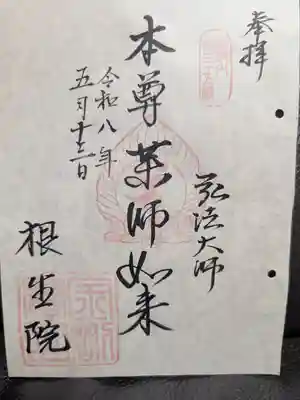 奉拝
弘法大師
本尊 薬師如来
令和八年
五月十三日
根生院